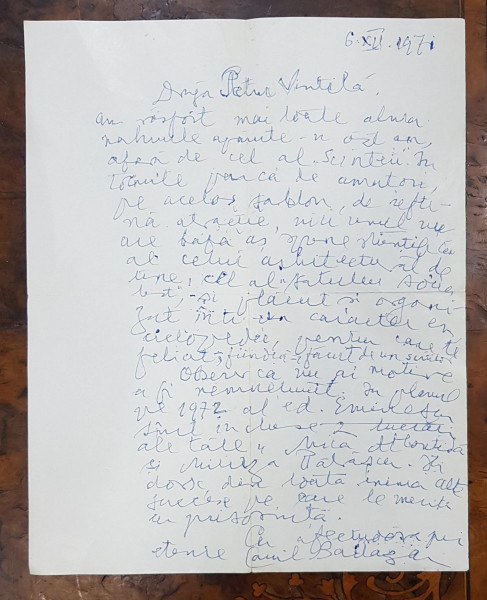 6.XII.1971
Dragă Petru Vintilă,
am răsfoit mai toate alma
nahurile apărute în ăst an,
afară de cel al „Scînteii". În
tocmite parcă de amatori,
pe același șablon, de iefti
nă atracție, nici unul nu
are bază aș spune științifică
al celui arhitectural de
cel al „Satului socia
list", și plăcut și organi
zat într-un caracter en
ciclopedic, pentru care te
felicit, fiindcă-i făcut de un
Observ că nu ai motive
a fi nemulțumit. În planul
pe 1972 al ed. Eminescu
sînt incluse 2 lucrări
ale tale „Mica Atlantidă
și Miliția Îți
doresc din toată inima alte
succese pe care le meriți
cu prisosință.
Cu afectuoasă pri
etenie Camil Baltazar